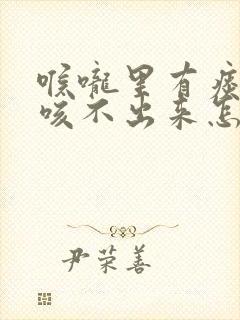 喉咙里有痰
咳不出来怎
尹荣善